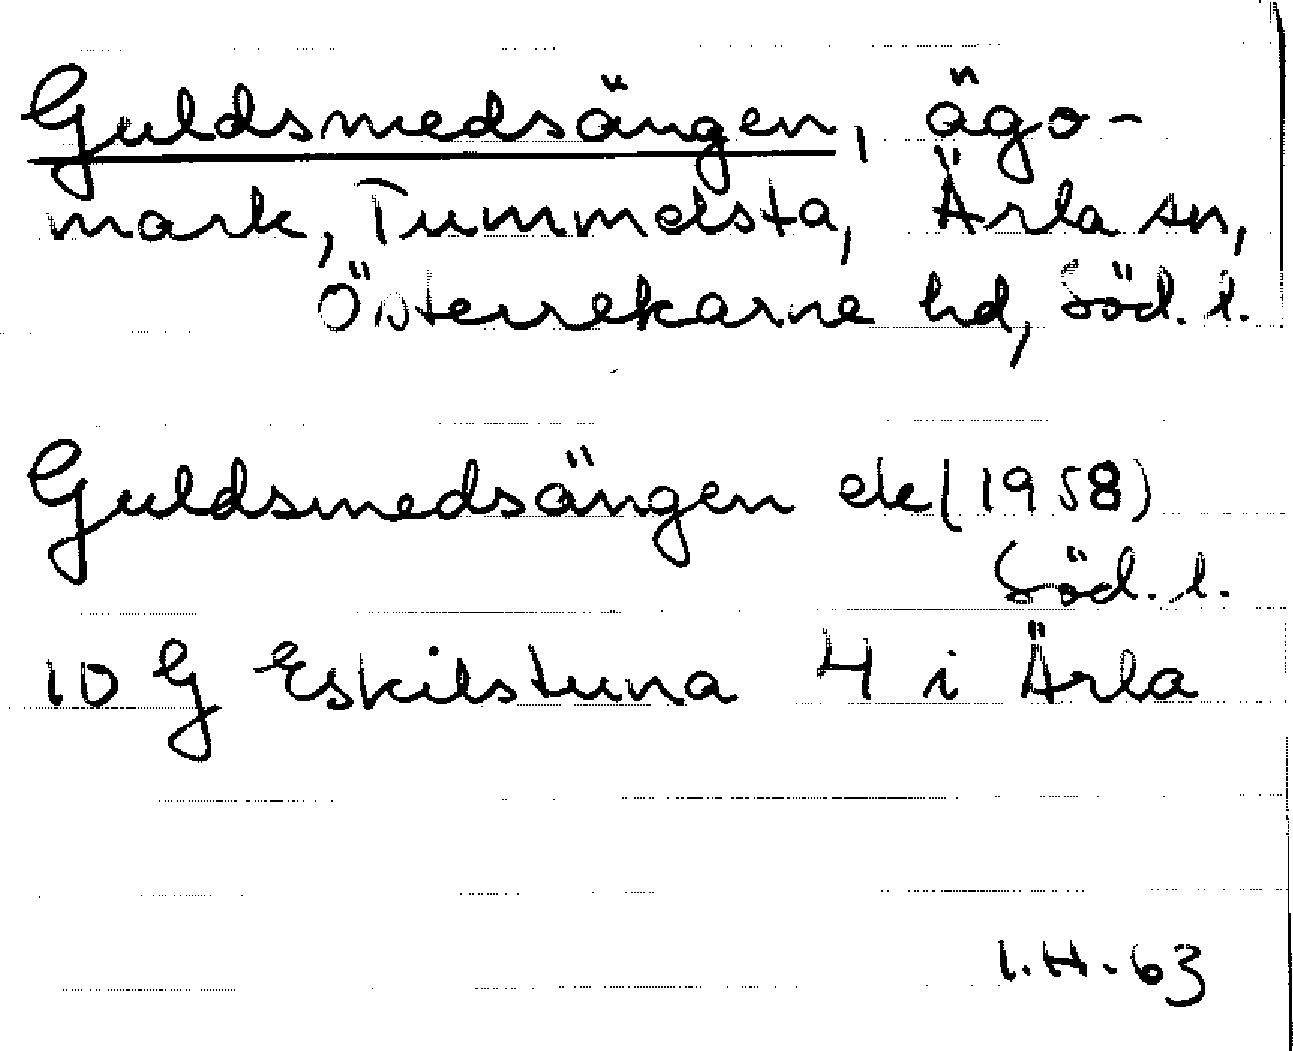 Guldsmedsängen, ägo-
mark, Tummelsta, Ärla sn,
Österrekarne hd, Söd. l.
Guldsmedsängen ek (1958)
Söd. l.
10 G Eskilstuna 4 i Ärla
I.H-63